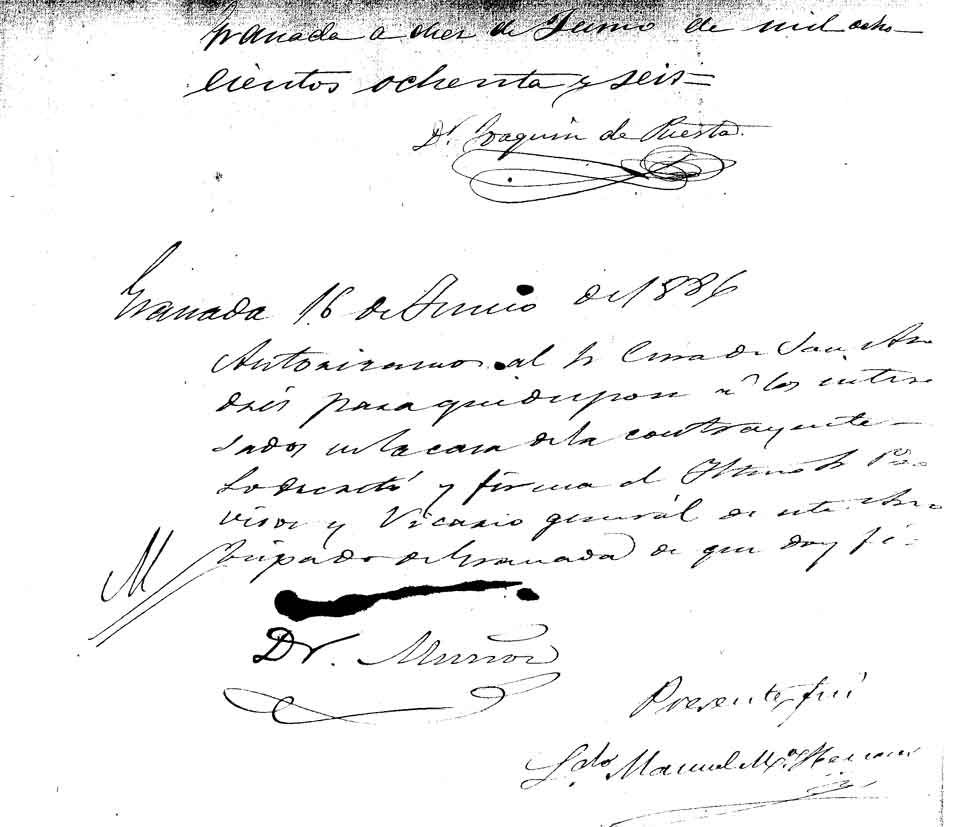 Granada a diez de Junio de mil ocho
cientos ochenta y seis=
Dr. Joaquin de Puerta
Granada 16 de Junio de 1886
Autorizamos al Sr Cura de San An
drés para que despose á los intere
sados en la casa de la contrayente
Lo decretó y firma el Iltmo Sr Pro
visor y Vicario general de este Arzo
bispado de Granada de que doy fé.
M
Dr. Muñoz
Presente fuí
Ldo Manuel Mª